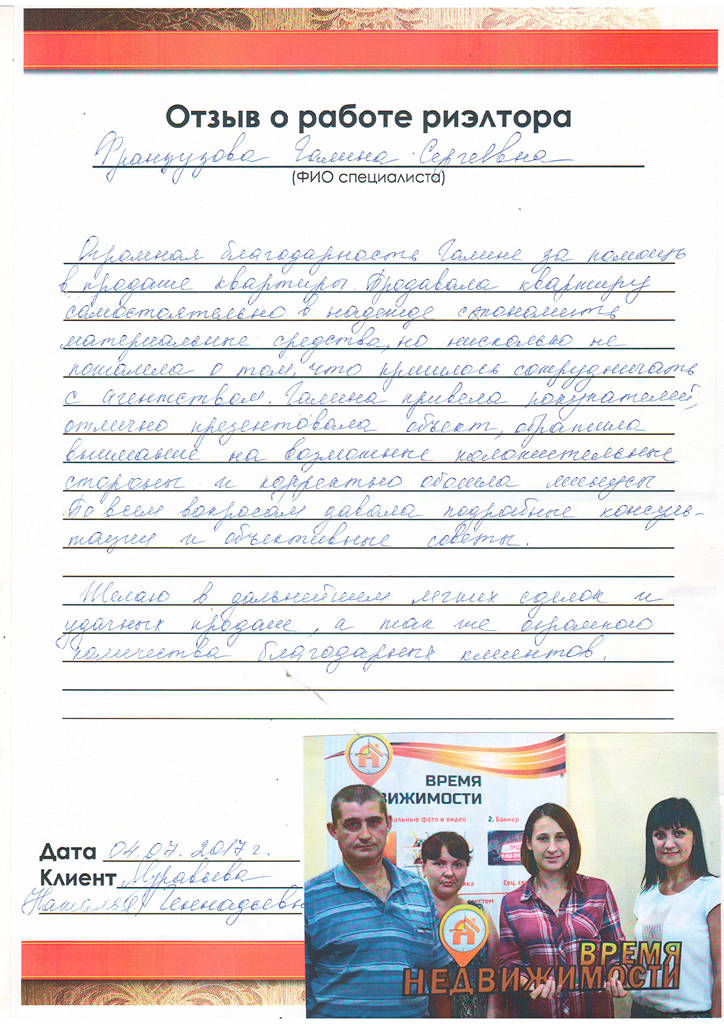 Отзыв о работе риэлтора
Французова Галина Сергеевна
(ФИО специалиста)
Огромная благодарность Галине за помощь
в продаже квартиры. Продавала квартиру
самостоятельно в надежде сэкономить
материальные средства, но нисколько не
пожалела о том, что пришлось сотрудничать
с агентством. Галина привела покупателей,
отлично презентовала объект, обратила
внимание на возможные положительные
стороны и корректно обошла минусы.
По всем вопросам давала подробные консуль-
тации и объективные советы.
Желаю в дальнейшем легких сделок и
удачных продаж, а так же огромного
количества благодарных клиентов.
Дата 04.07.2017 г.
Клиент Муравьева
Наталья Геннадьевна
ВРЕМЯ
ВИЖИМОСТИ
альные фото и видео
2. Баннер
Соц.
ВРЕМЯ
НЕДВИЖИМОСТИ